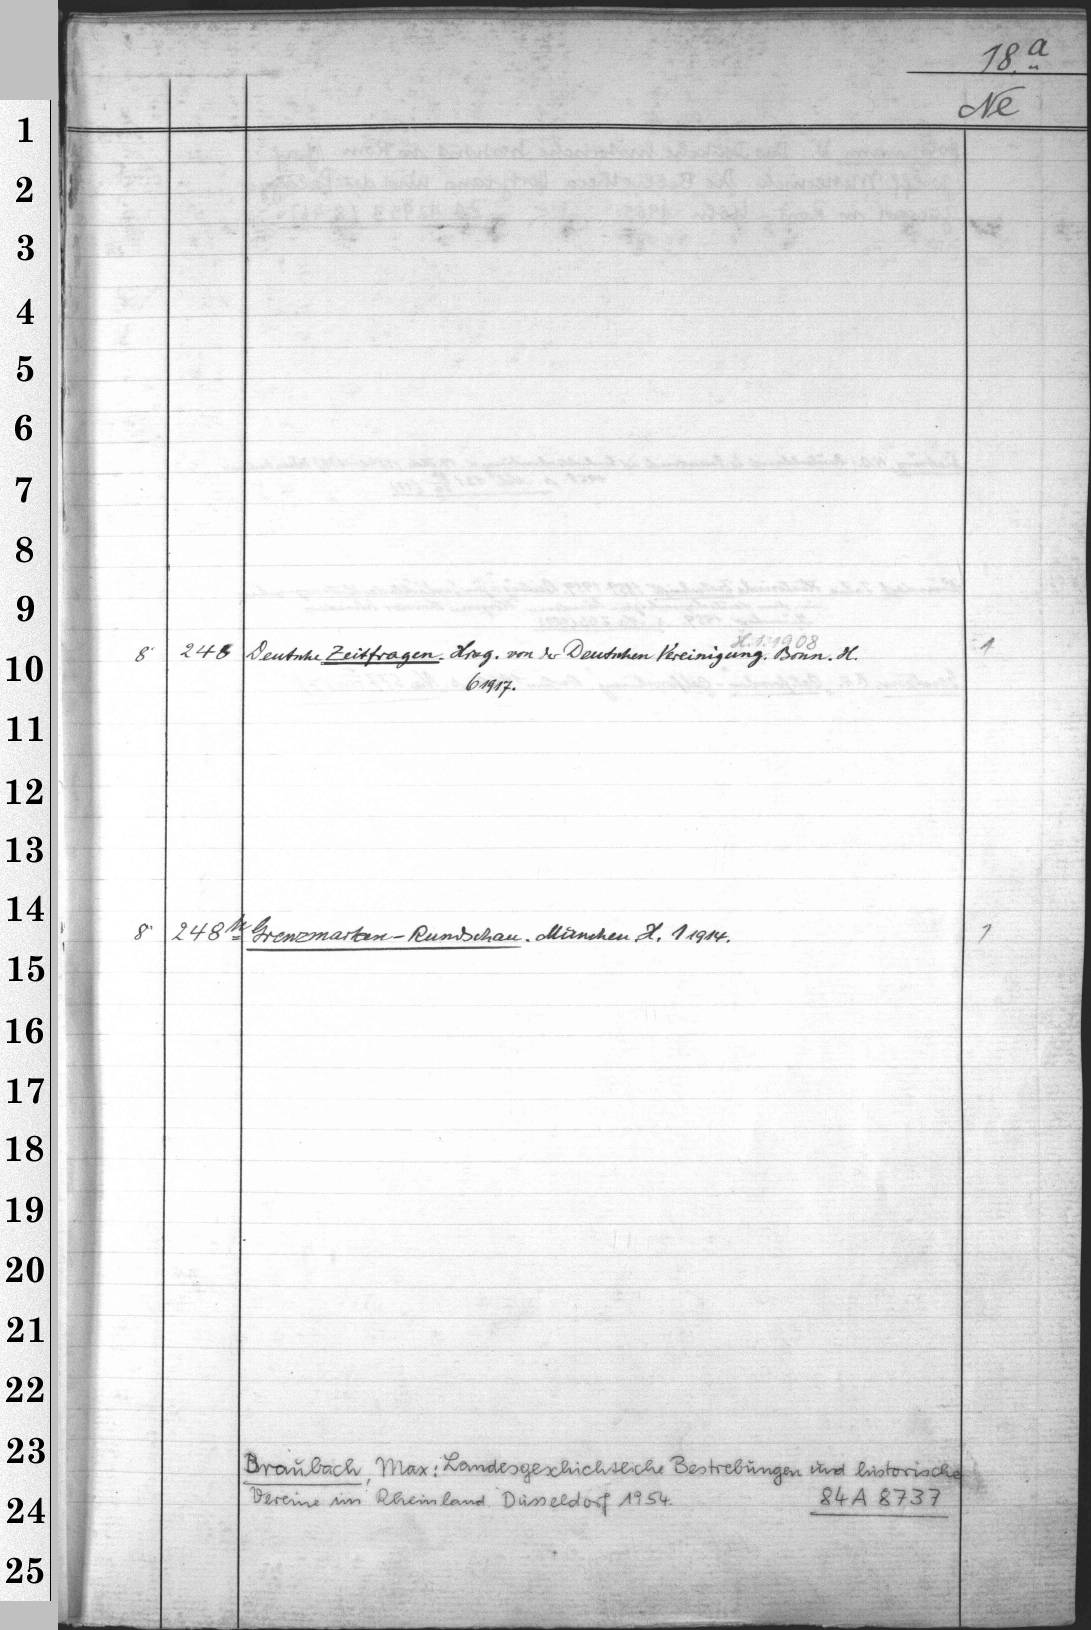 18.a
Ne
1
2
3
4
5
6
7
8
9
H. 1. 1908
8° 248 Deutsche Zeitfragen. Hrsg. von der Deutschen Vereinigung. Bonn. H. 1
10
6 1917.
11
12
13
14
8° 248 Grenzmarken-Rundschau. München. H. 1 1914. 1
15
16
17
18
19
20
21
22
23
Braubach, Max: Landesgeschichtliche Bestrebungen und historische
Vereine im Rheinland Düsseldorf 1954. 84 A 8737
24
25